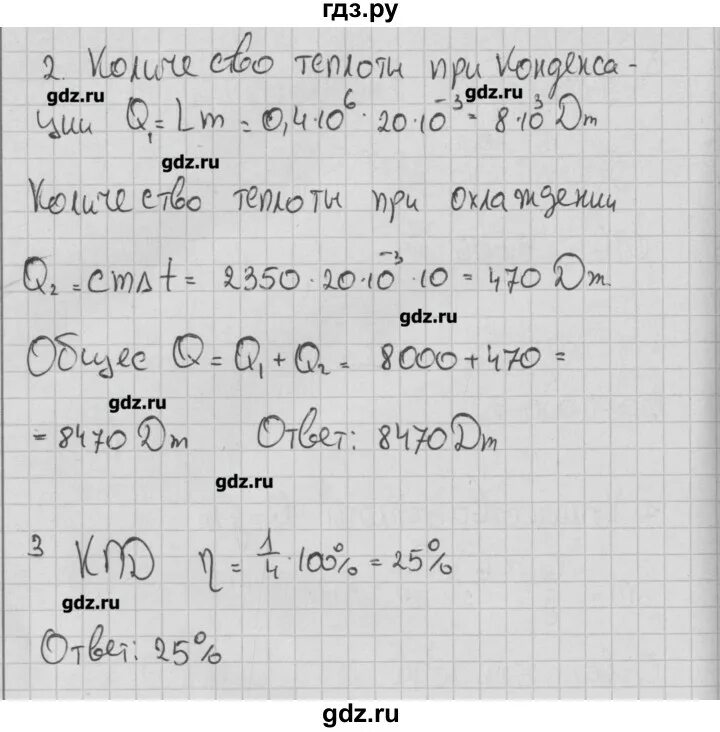 гдз.ру
2. Количество теплоты при конденса-
gdz.ru gdz.ru
ции Q₁ = Lm = 0,4·10⁶ · 20·10⁻³ = 8·10³ Дж
gdz.ru
Количество теплоты при охлаждении
Q₂ = cmΔt = 2350 · 20·10⁻³ · 10 = 470 Дж.
gdz.ru
Общее Q = Q₁ + Q₂ = 8000 + 470 =
gdz.ru
= 8470 Дж Ответ: 8470 Дж
gdz.ru
3 КПД η = 1/4 · 100% = 25%
gdz.ru
Ответ: 25%
gdz.ru